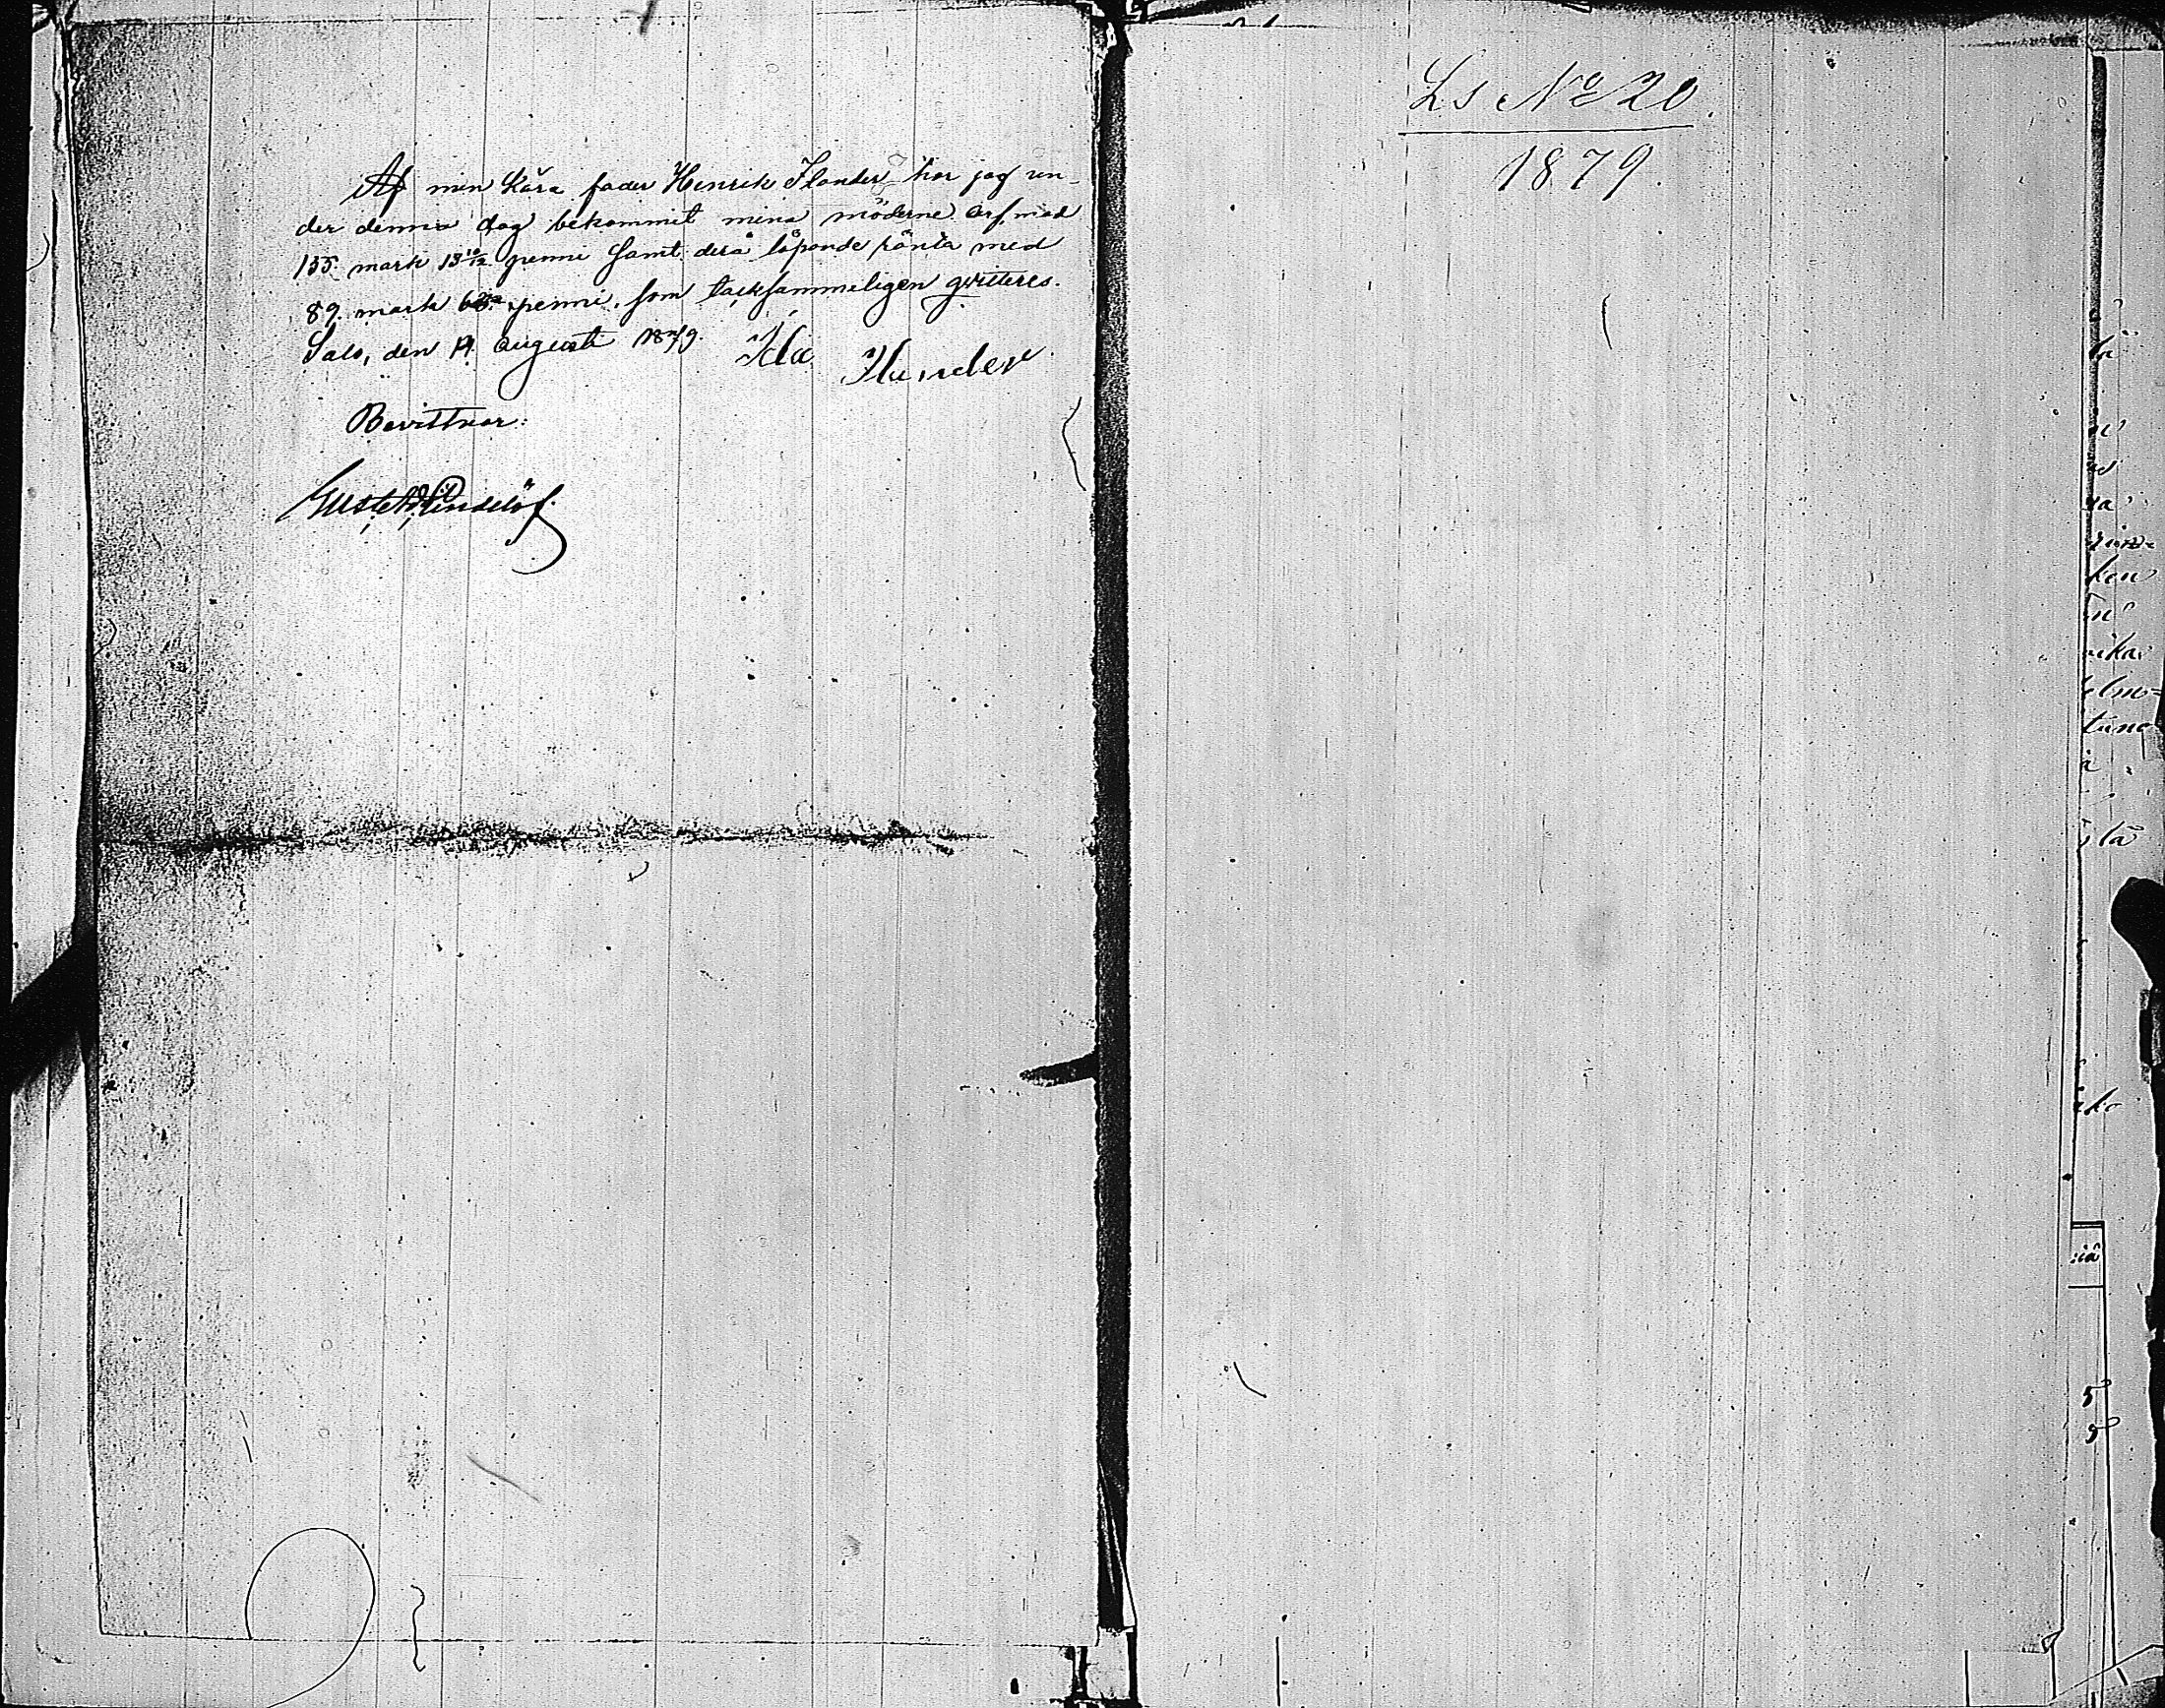 Af min kära fader Henrik Ilander har jag un-
der denna dag bekommit mina möderne arf, med
155. mark 13 10/12 penni samt derå löpande ränta med
89. mark penni, som tacksammeligen qvitteres.
Salo, den 19 augusti 1879. Ida Ilander
Bevittnar:
Gustaf Lindelöf.
L.s No 20.
1879.